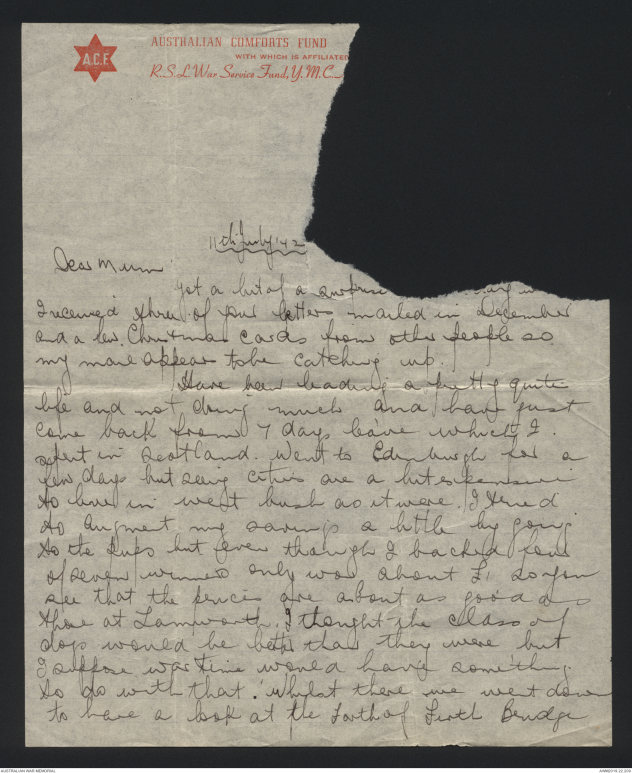 A.C.F.
AUSTRALIAN COMFORTS FUND
WITH WHICH IS AFFILIATED
R.S.L. War Service Fund, Y.M.C.A
11th July '42
Dear Mum
Got a bit of a surprise
I received three of your letters mailed in December
and a few Christmas cards from other people so
my mail appears to be catching up.
Have been leading a pretty quite
life and not doing much and have just
come back from 7 days leave which I
spent in Scotland. Went to Edinburgh for a
few days but seeing cities are a bit expensive
to live in went bush as it were. I tried
to augment my savings a little by going
to the dogs but even though I backed four
of seven winners only won about £1 so you
see that the prices are about as good as
those at Tamworth. I thought the class of
dogs would be better than they were but
I suppose war time would have something
to do with that. Whilst there we went down
to have a look at the Forth of Firth Bridge
AUSTRALIAN WAR MEMORIAL